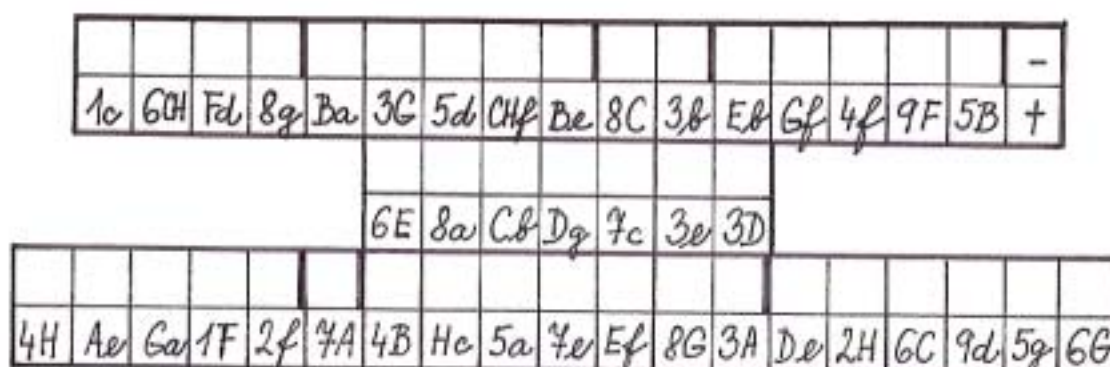 -
1c 6CH Fd 8g Ba 3G 5d CHf Be 8C 3b Eb Gf 4f 9F 5B +
6E 8a Cb Dg 7c 3e 3D
4H Ae Ga 1F 2f 7A 4B Hc 5a 7e Ef 8G 3A De 2H 6C 9d 5g 6G